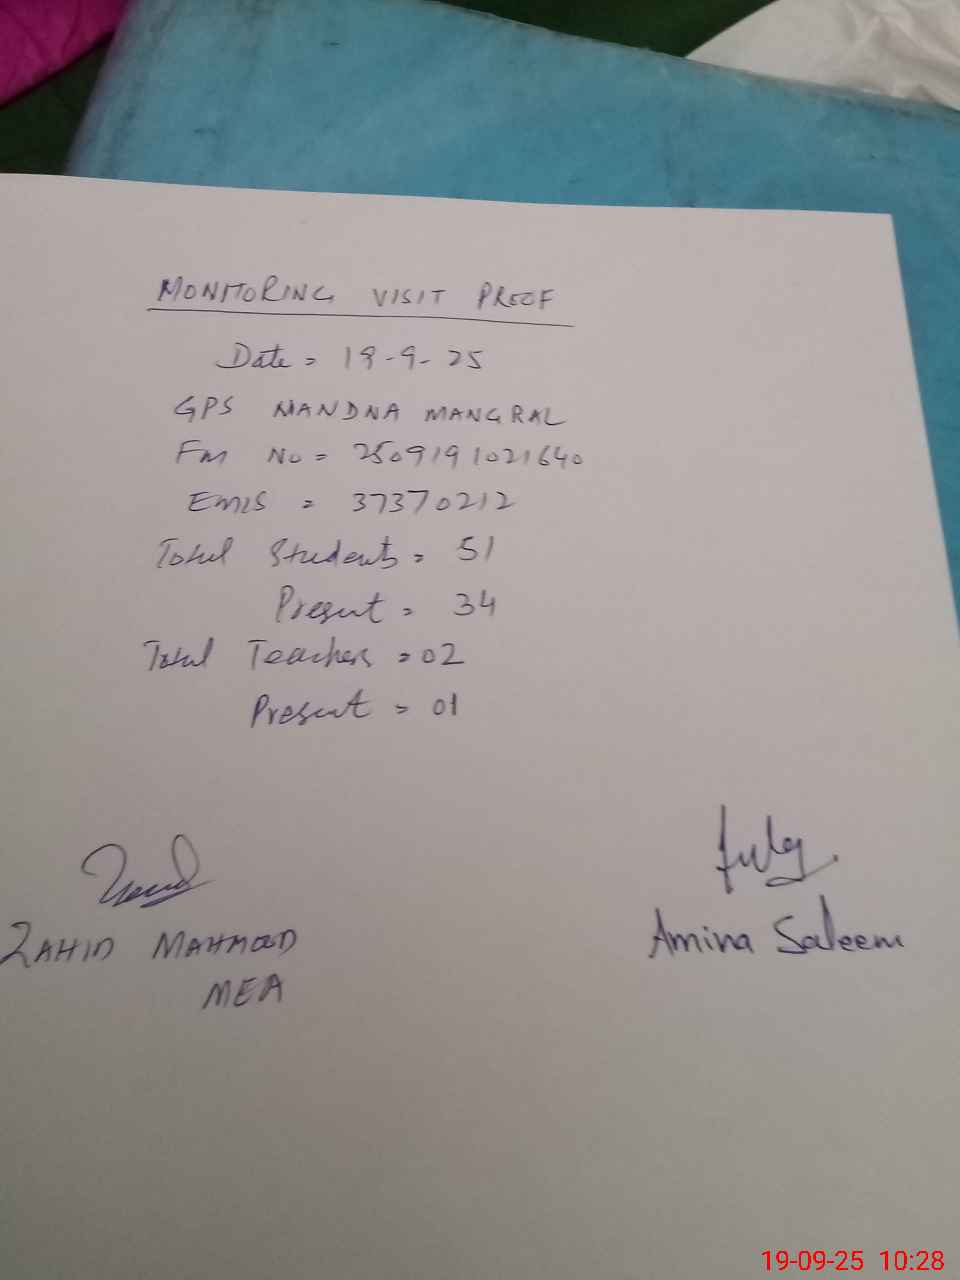 MONITORING VISIT PROOF
Date = 19-9-25
GPS NANDNA MANGRAL
Fm No = 2509191021640
EMIS = 37370212
Total Students = 51
Present = 34
Total Teachers = 02
Present = 01
ZAHID MAHMOOD
MEA
Amina Saleem
19-09-25 10:28